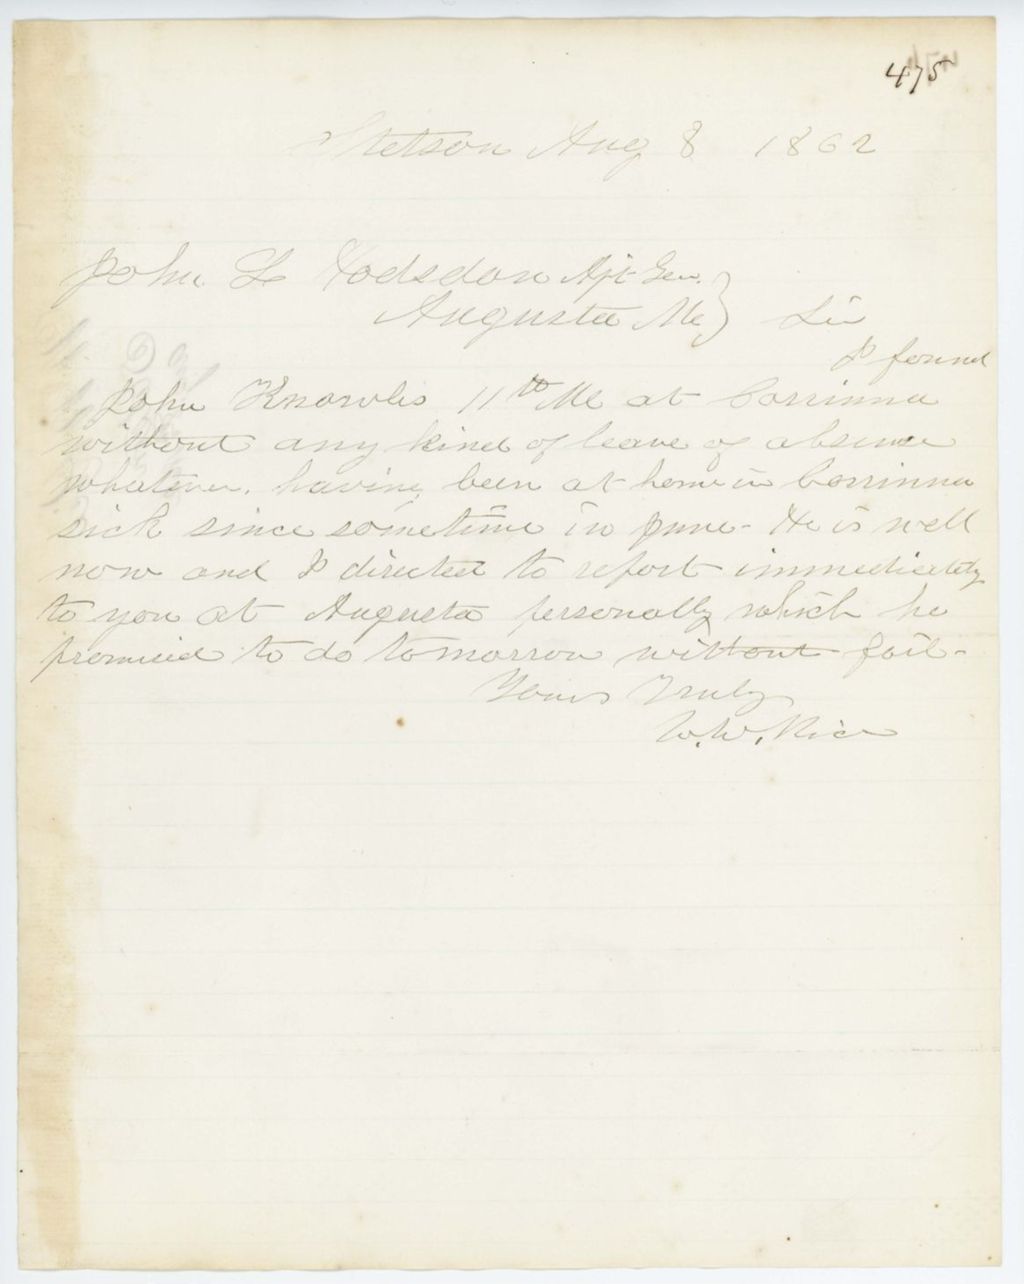 475
Stetson Aug 8 1862
John L Hodsdon Ajt Gen.
Augusta Me } Sir
I found
John Knowles 11th Me at Corrinna
without any kind of leave of absence
whatever. having been at home in Corrinna
sick since sometime in June - He is well
now and I directed to report immediately
to you at Augusta personally which he
promised to do tomorrow without fail -
Yours Truly
W. W. Rice